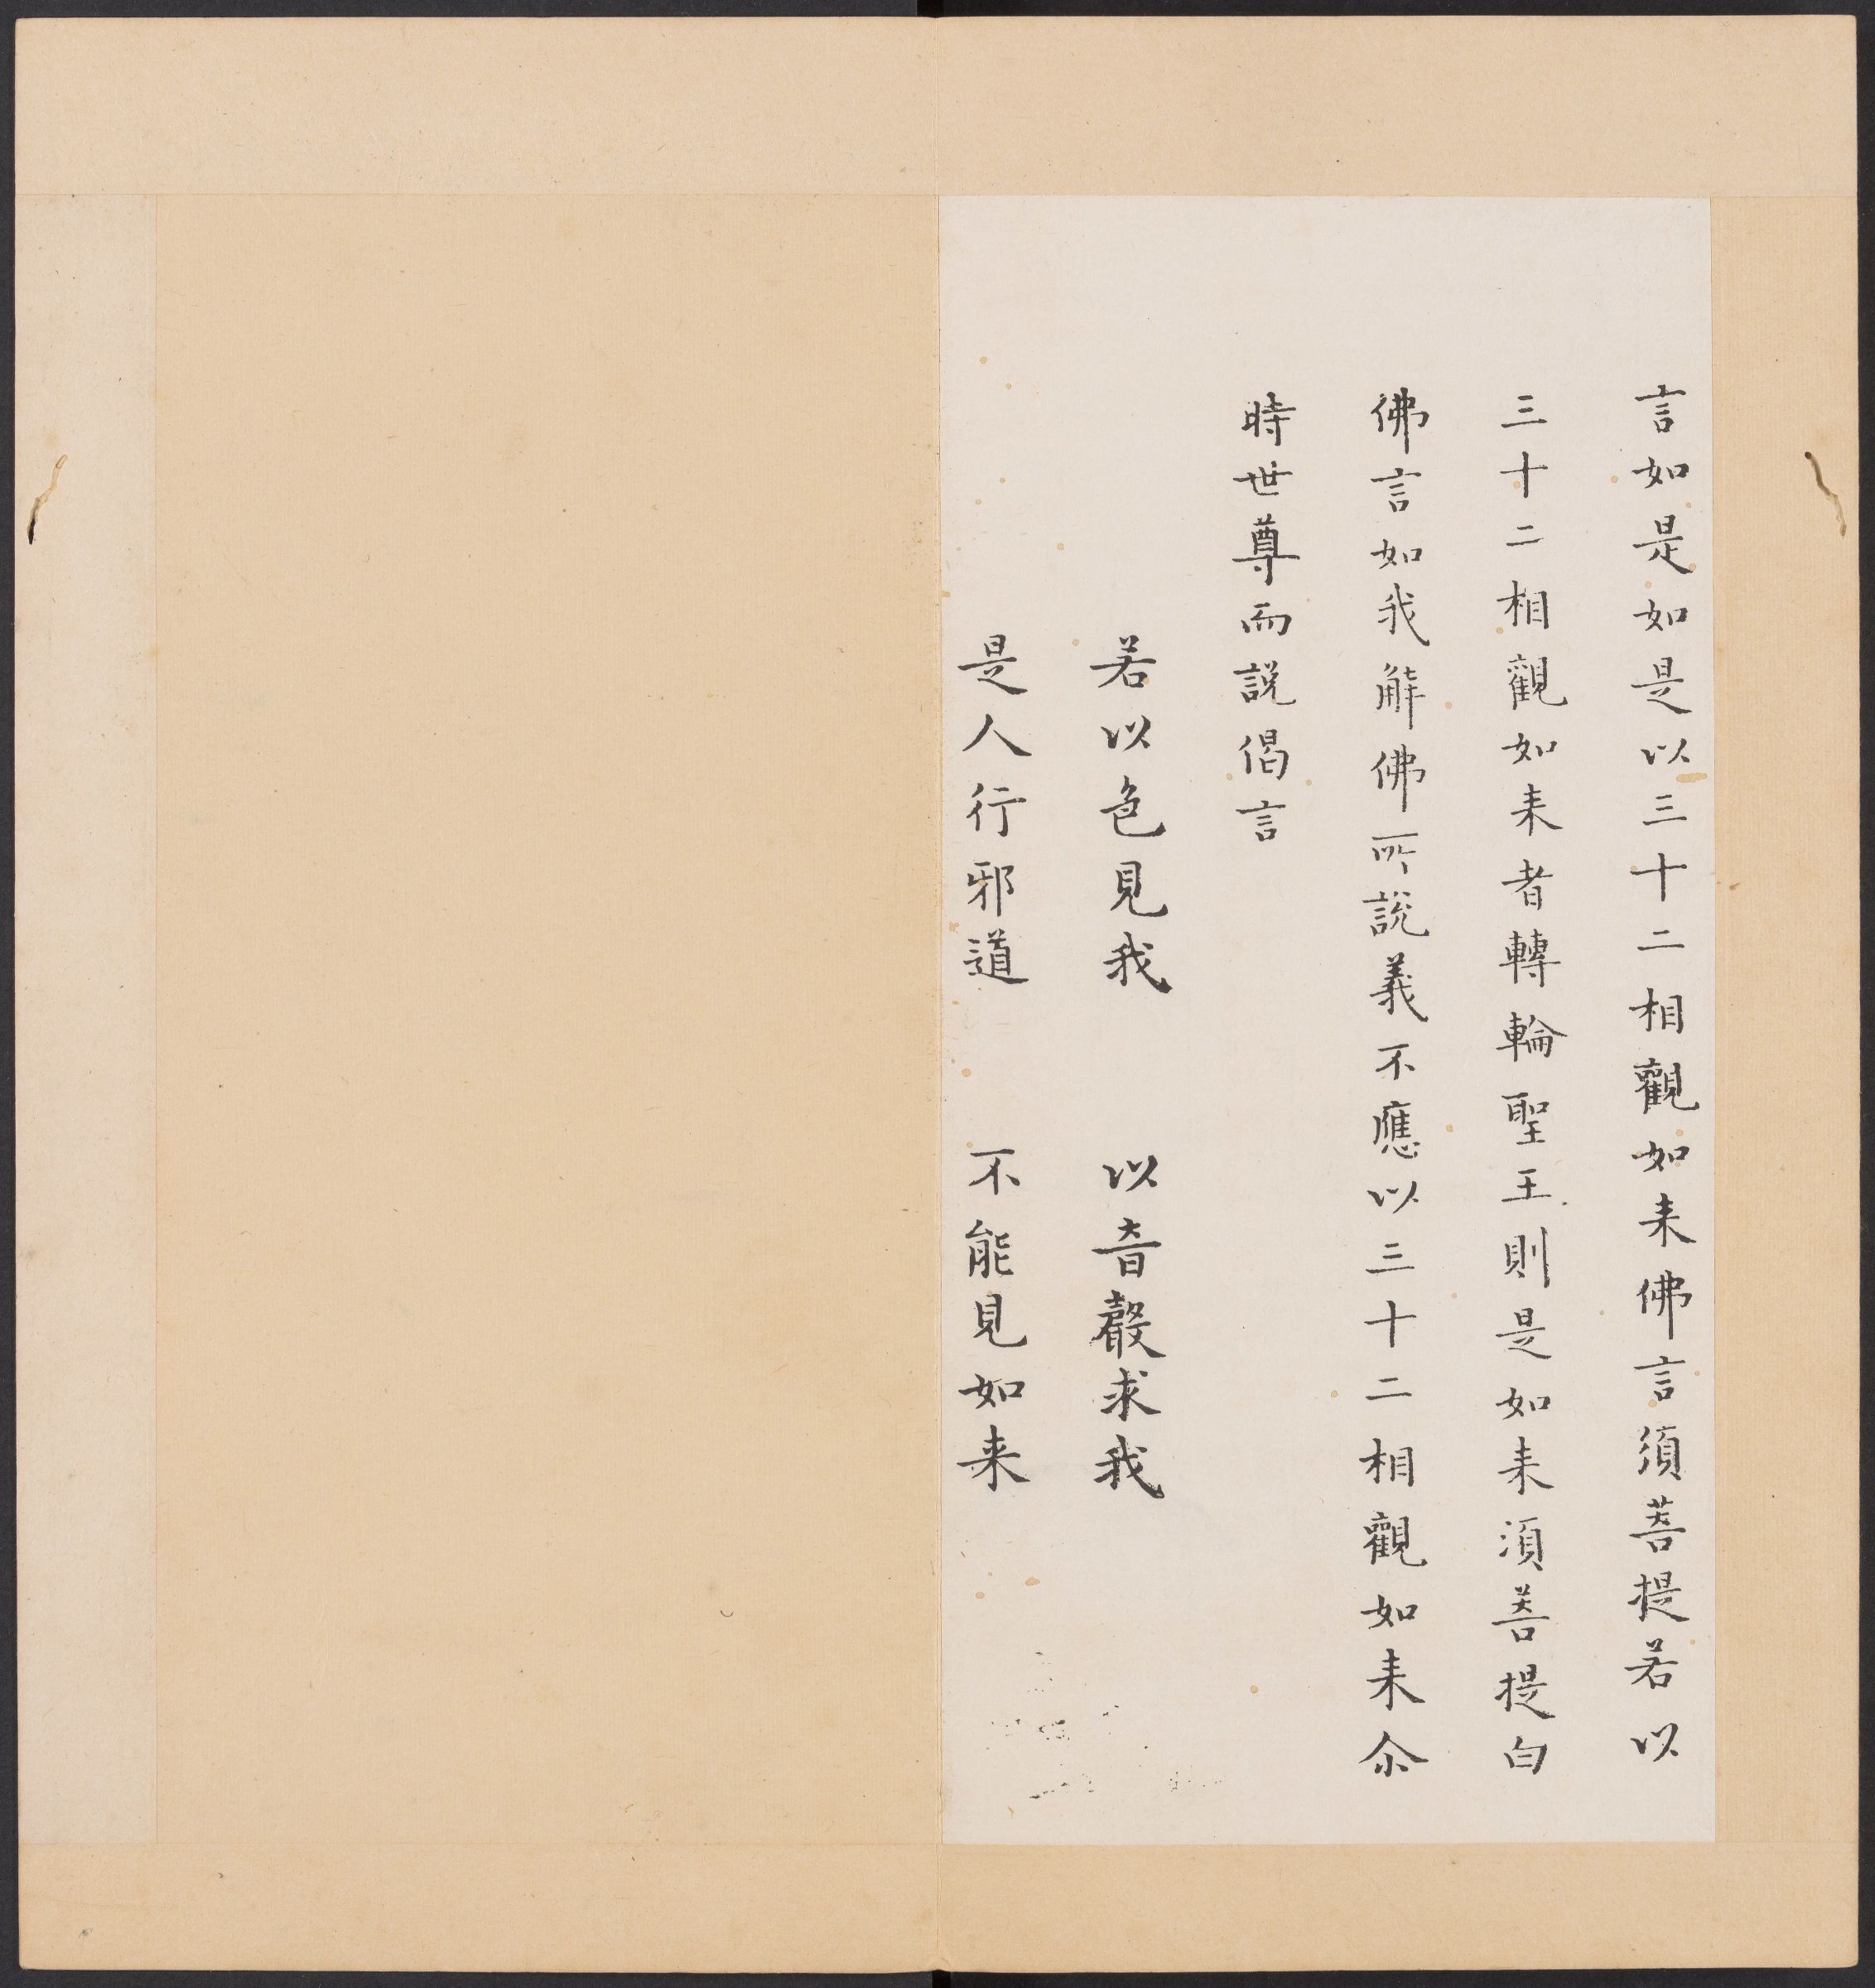 言如是如是以三十二相觀如来佛言須菩提若以
三十二相觀如来者轉輪聖王則是如来須菩提白
佛言如我解佛所說義不應以三十二相觀如来尒
時世尊而說偈言
若以色見我 以音聲求我
是人行邪道 不能見如来